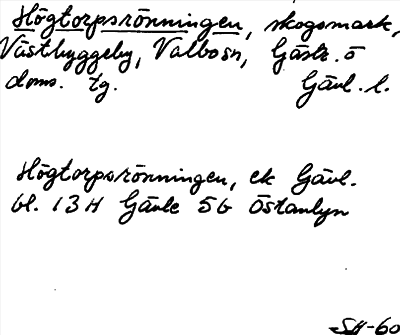 Högtorpsrönningen, skogsmark,
Västbyggeby, Valbo sn, Gästr. ö
doms. tg. Gävl. l.
Högtorpsrönningen, ek Gävl.
bl. 13 H Gävle 5G Östanlyn
SH-60